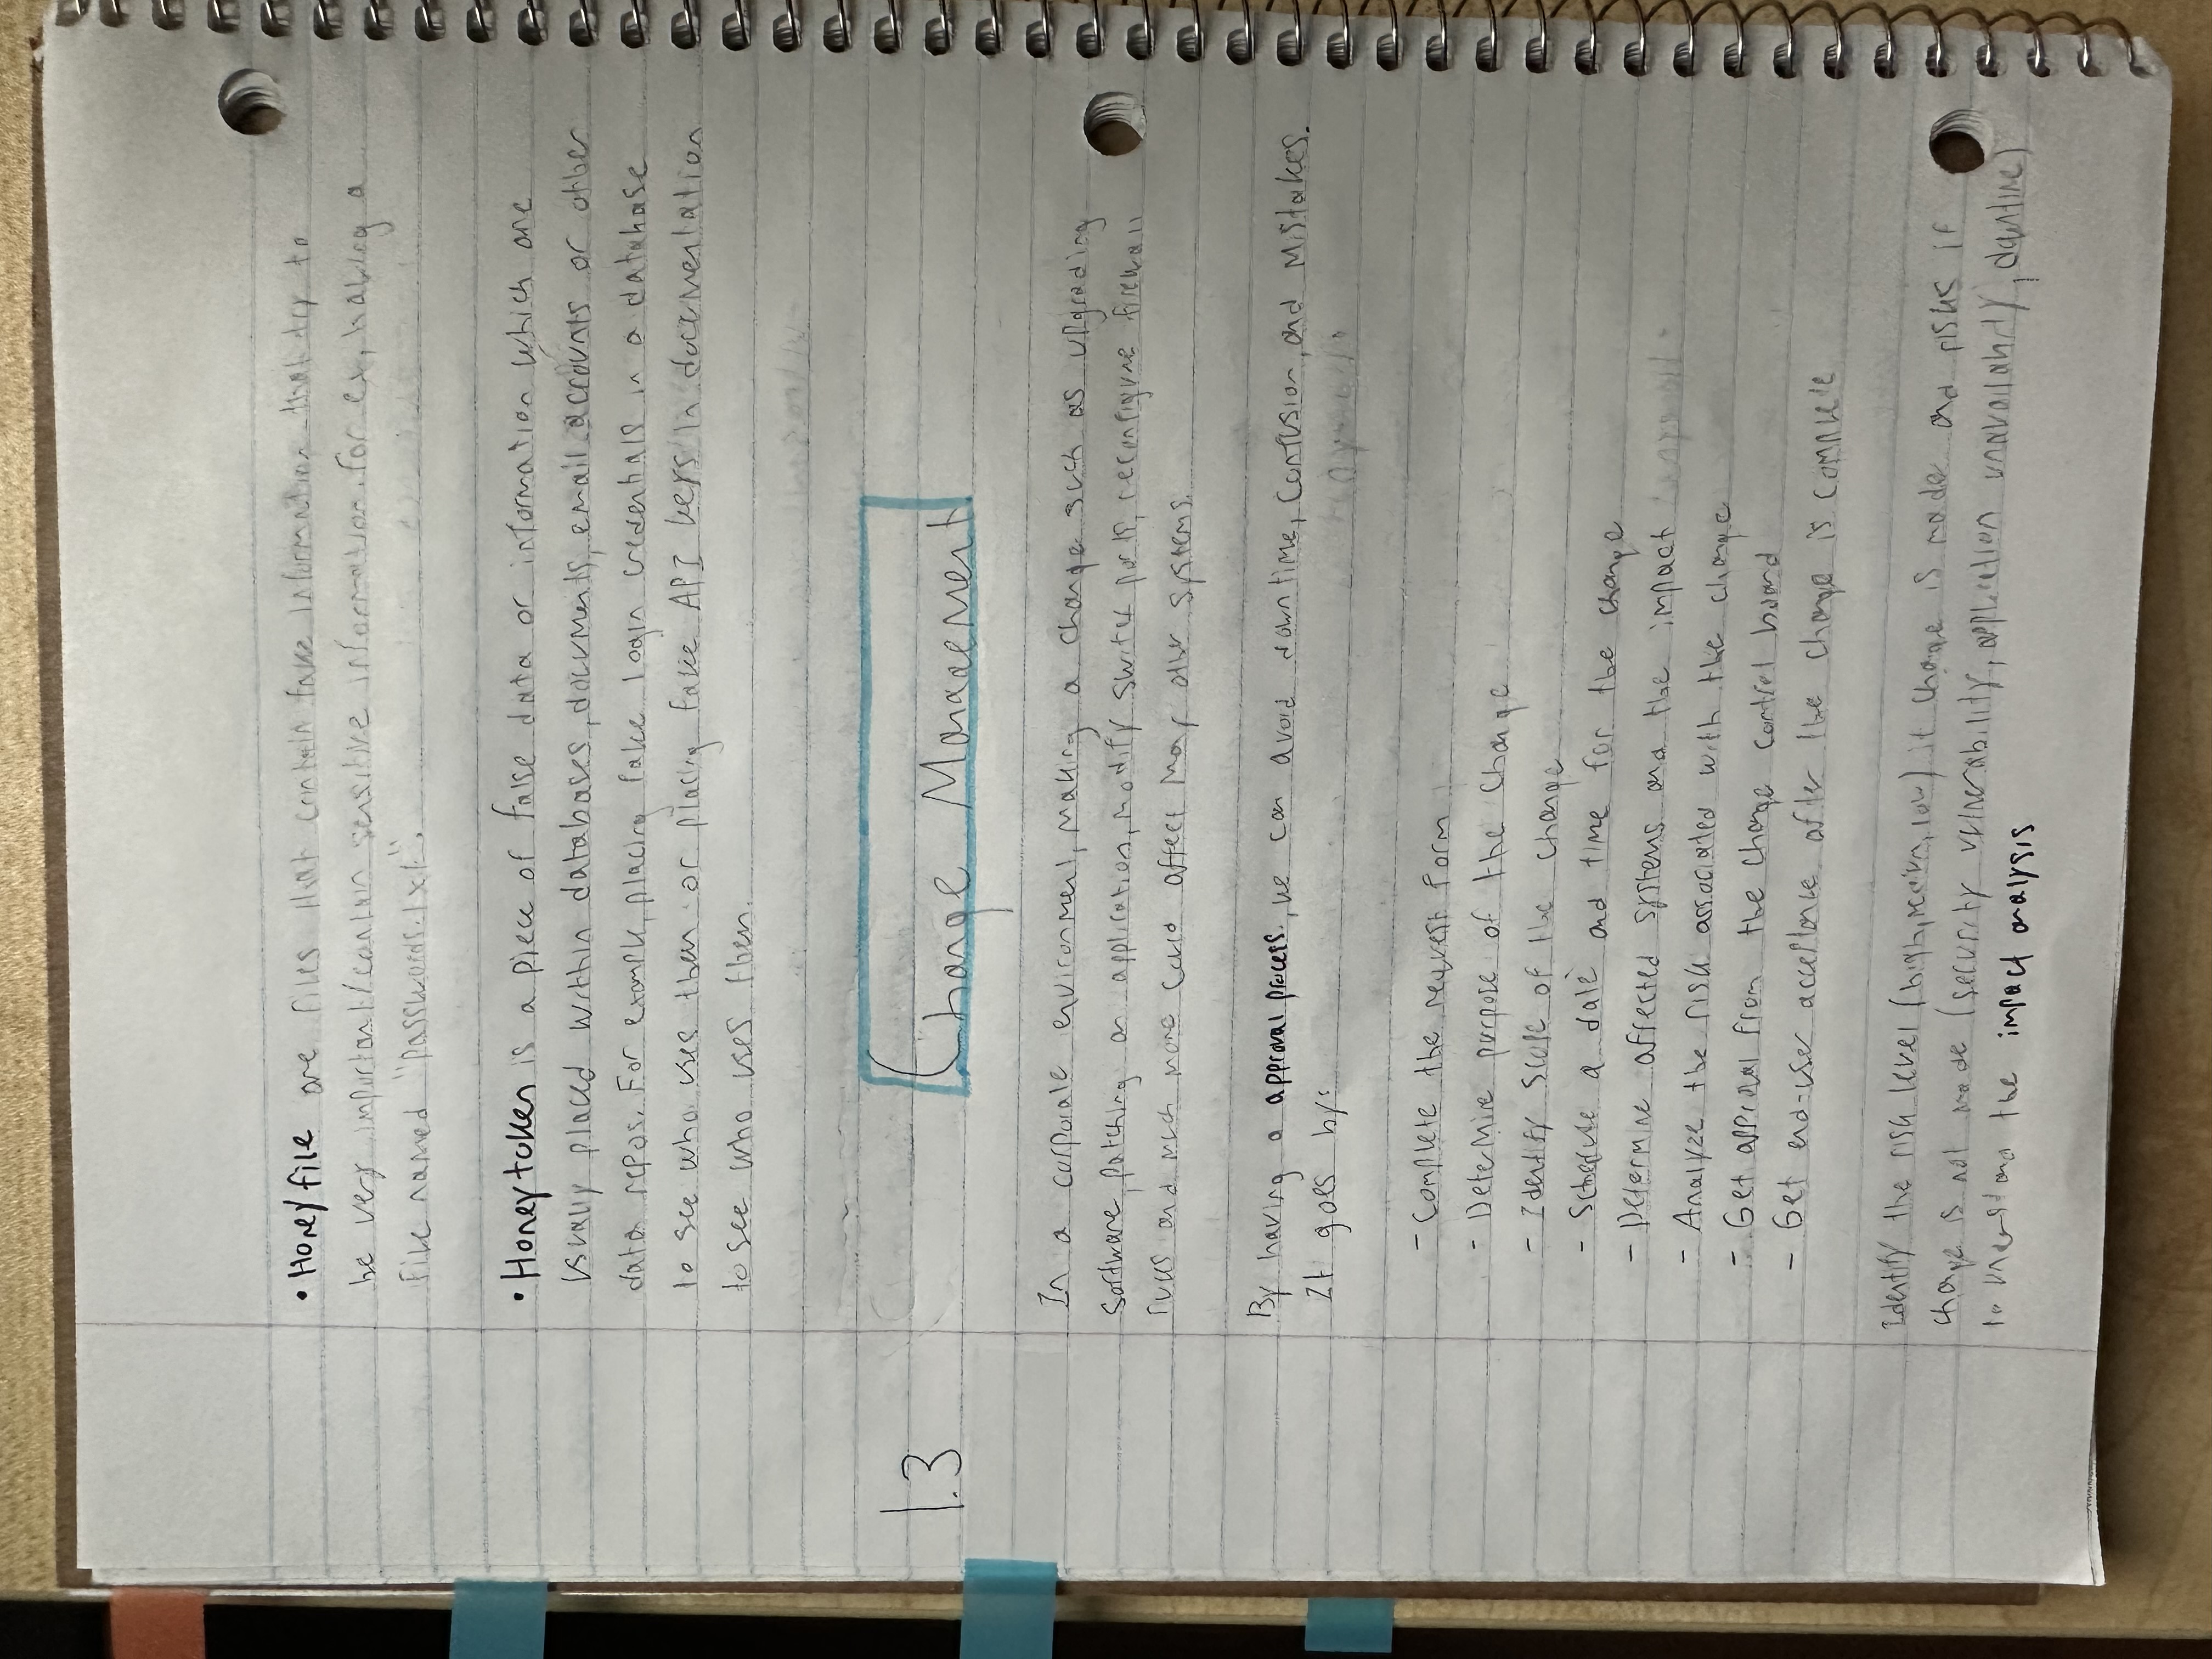 • Honeyfile are files that contain fake information that try to
be very important/contain sensitive information. for ex, having a
file named "Passwords.txt".
• Honeytoken is a piece of false data or information which are
usually placed within databases, documents, email accounts or other
data repos. For example, placing fake login credentials in a database
to see who uses them or placing fake API keys in documentation
to see who uses them.
1.3 Change Management
In a corporate environment, making a change such as upgrading
software, patching an application, modify switch ports, reconfigure firewall
rules and much more could affect many other systems.
By having a approval process, we can avoid downtime, confusion, and mistakes.
It goes by:
- Complete the request form
- Determine purpose of the change
- Identify scope of the change
- Schedule a date and time for the change
- Determine affected systems and the impact
- Analyze the risk associated with the change
- Get approval from the change control board
- Get end-user acceptance after the change is complete
Identify the risk level (high, medium, low) if change is made and risks if
change is not made (security vulnerability, application unavailability, downtime)
to understand the impact analysis